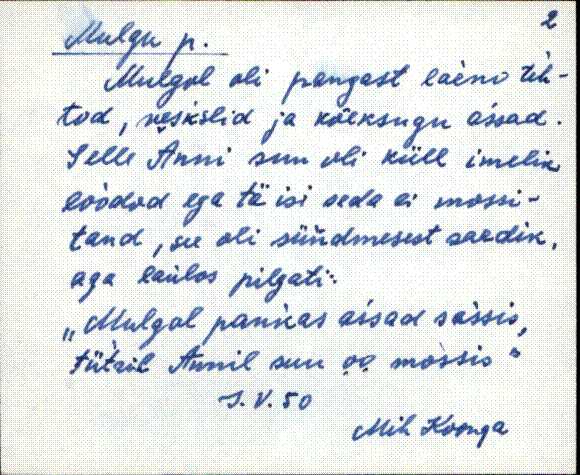 2
Mulgu p.
Mulgol oli pangast laenu teh-
tod, veskslid ja kõeksugu assad.
Selle Anni suu oli küll imelik
loodod ega tä isi seda ei mossi-
tand, see oli sündmesest saadik,
aga laulos pilgati:
„Mulgol pankas assad sassis,
tütril Annil suu oo mossis"
S. V. 50
Mih Koonga